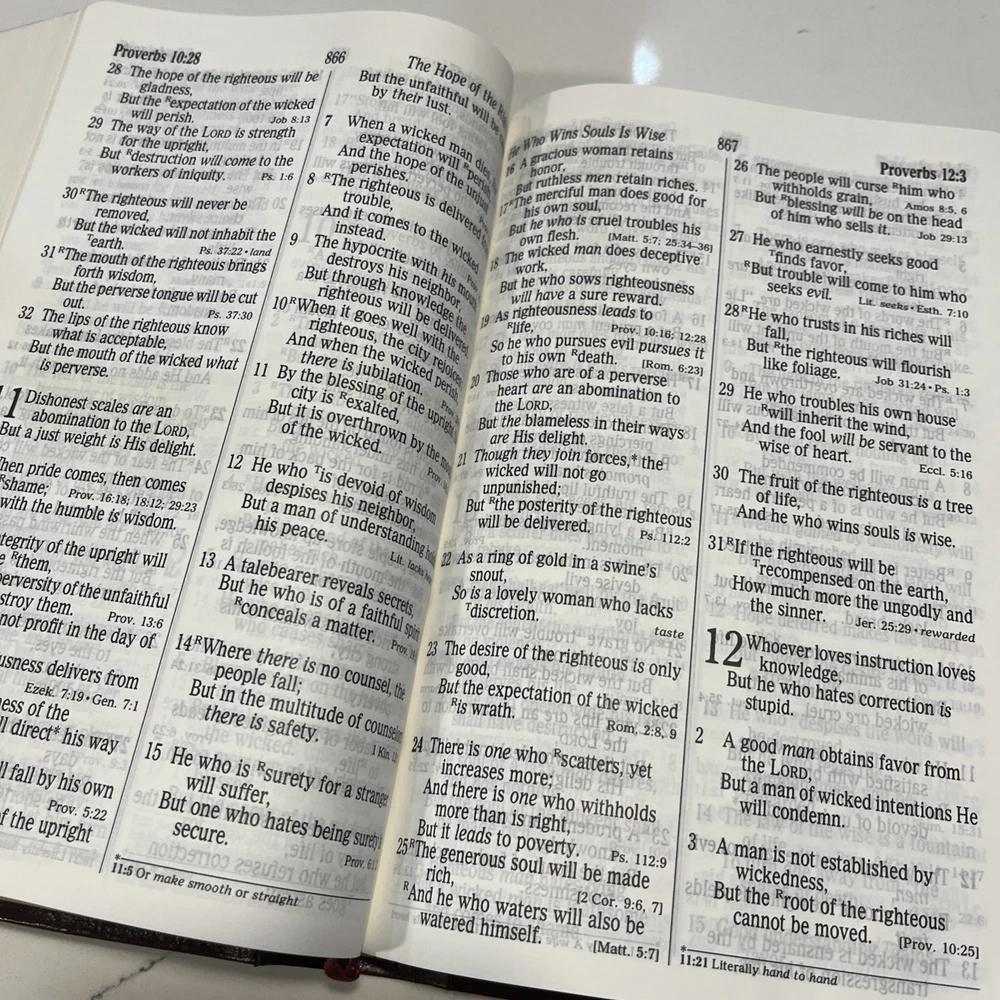 Proverbs 10:28
28 The hope of the righteous will be
gladness,
But the ᴿexpectation of the wicked
will perish. Job 8:13
29 The way of the LORD is strength
for the upright,
But ᴿdestruction will come to the
workers of iniquity. Ps. 1:6
30 ᴿThe righteous will never be
removed,
But the wicked will not inhabit the
ᵀearth. Ps. 37:22 • land
31 ᴿThe mouth of the righteous brings
forth wisdom,
But the perverse tongue will be cut
out. Ps. 37:30
32 The lips of the righteous know
what is acceptable,
But the mouth of the wicked what
is perverse.
Dishonest scales are an
abomination to the LORD,
But a just weight is His delight.
pride comes, then comes
ᴿshame; Prov. 16:18; 18:12; 29:23
with the humble is wisdom.
of the upright will
ᴿthem,
of the unfaithful
them. Prov. 13:6
not profit in the day of
delivers from
Ezek. 7:19 • Gen. 7:1
of the
direct* his way
fall by his own
Prov. 5:22
of the upright
866
The Hope of the
But the unfaithful will be
by their lust.
7 When a wicked man dies,
expectation will ᴿperish
And the hope of the unjust
perishes.
8 ᴿThe righteous is delivered
trouble,
And it comes to the wicked
instead.
9 The hypocrite with his mouth
destroys his neighbor,
But through knowledge the
righteous will be delivered.
10 ᴿWhen it goes well with the
righteous, the city rejoices;
And when the wicked perish,
there is jubilation.
11 By the blessing of the upright
city is ᴿexalted,
But it is overthrown by the
of the wicked.
12 He who ᵀis devoid of wisdom
despises his neighbor,
But a man of understanding
his peace. Lit. lacks
13 A talebearer reveals secrets,
But he who is of a faithful spirit
ᴿconceals a matter. Prov.
14 ᴿWhere there is no counsel, the
people fall;
But in the multitude of counselors
there is safety. 1 Kin.
15 He who is ᴿsurety for a stranger
will suffer,
But one who hates being surety
secure. Prov.
*
11:5 Or make smooth or straight
He Who Wins Souls Is Wise
16 A gracious woman retains
honor,
But ruthless men retain riches.
17 ᴿThe merciful man does good for
his own soul,
But he who is cruel troubles his
own flesh. [Matt. 5:7; 25:34–36]
18 The wicked man does deceptive
work,
But he who sows righteousness
will have a sure reward.
19 As righteousness leads to
ᴿlife, Prov. 10:16; 12:28
So he who pursues evil pursues it
to his own ᴿdeath. [Rom. 6:23]
20 Those who are of a perverse
heart are an abomination to
the LORD,
But the blameless in their ways
are His delight.
21 Though they join forces,* the
wicked will not go
unpunished;
But ᴿthe posterity of the righteous
will be delivered. Ps. 112:2
22 As a ring of gold in a swine's
snout,
So is a lovely woman who lacks
ᵀdiscretion. taste
23 The desire of the righteous is only
good,
But the expectation of the wicked
ᴿis wrath. Rom. 2:8, 9
24 There is one who ᴿscatters, yet
increases more;
And there is one who withholds
more than is right,
But it leads to poverty. Ps. 112:9
25 ᴿThe generous soul will be made
rich, [2 Cor. 9:6, 7]
ᴿAnd he who waters will also be
watered himself. [Matt. 5:7]
867
Proverbs 12:3
26 The people will curse ᴿhim who
withholds grain, Amos 8:5, 6
But ᴿblessing will be on the head
of him who sells it. Job 29:13
27 He who earnestly seeks good
ᵀfinds favor,
ᴿBut trouble will come to him who
seeks evil. Lit. seeks • Esth. 7:10
28 ᴿHe who trusts in his riches will
fall,
But ᴿthe righteous will flourish
like foliage. Job 31:24 • Ps. 1:3
29 He who troubles his own house
ᴿwill inherit the wind,
And the fool will be servant to the
wise of heart. Eccl. 5:16
30 The fruit of the righteous is a tree
of life,
And he who wins souls is wise.
31 ᴿIf the righteous will be
ᵀrecompensed on the earth,
How much more the ungodly and
the sinner. Jer. 25:29 • rewarded
12 Whoever loves instruction loves
knowledge,
But he who hates correction is
stupid.
2 A good man obtains favor from
the LORD,
But a man of wicked intentions He
will condemn.
3 A man is not established by
wickedness,
But the ᴿroot of the righteous
cannot be moved. [Prov. 10:25]
*
11:21 Literally hand to hand